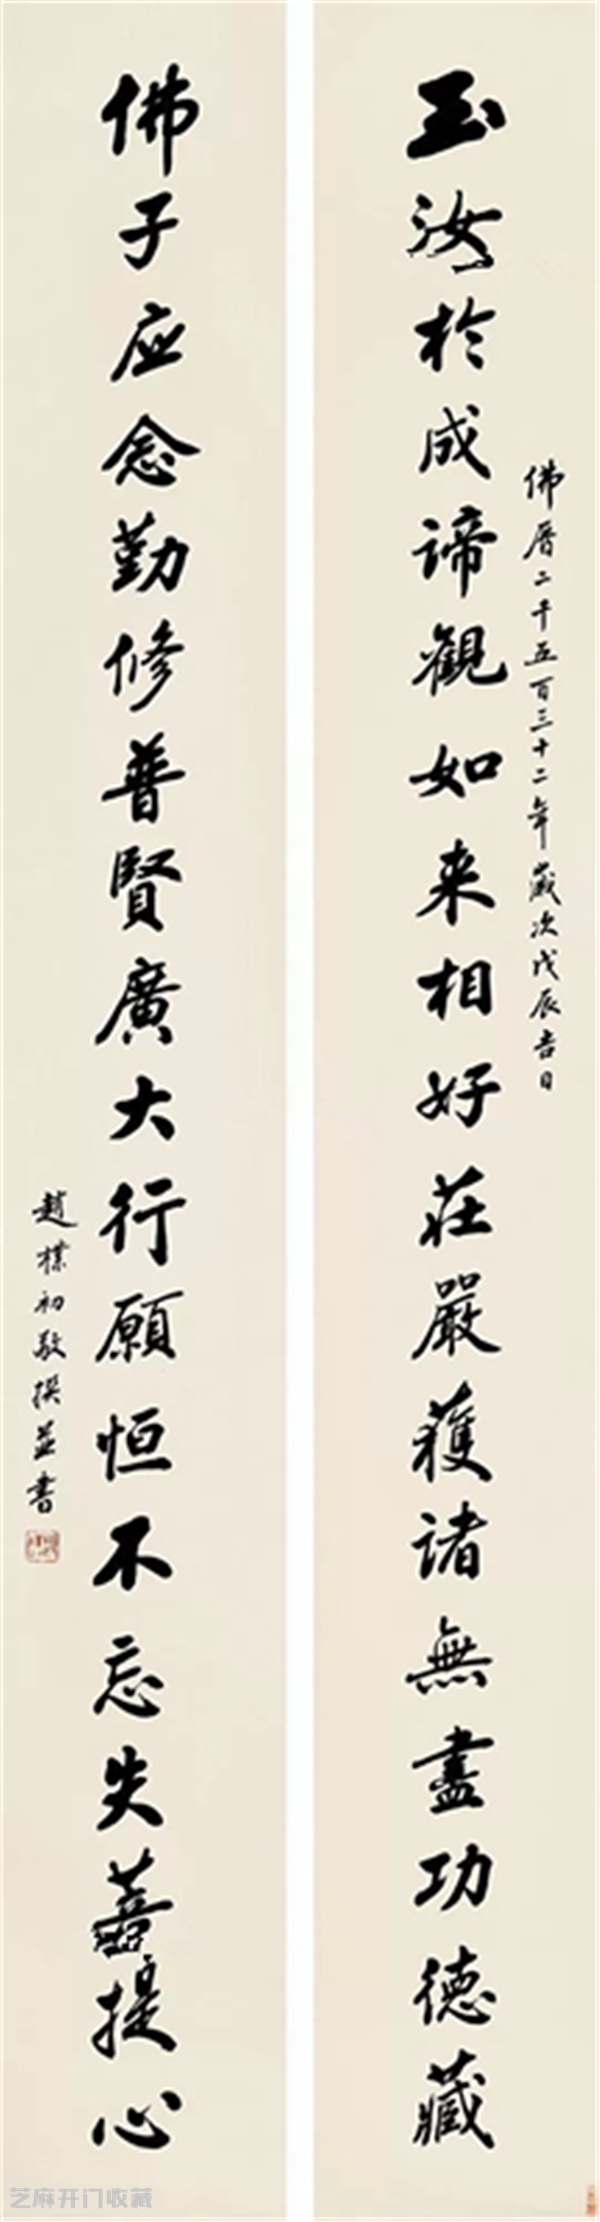 佛曆二千五百三十二年歲次戊辰吉日
玉汝於成諦觀如来相好莊嚴獲諸無盡功德藏
佛子应念勤修普賢廣大行願恒不忘失菩提心
趙樸初敬撰並書
芝麻开门收藏